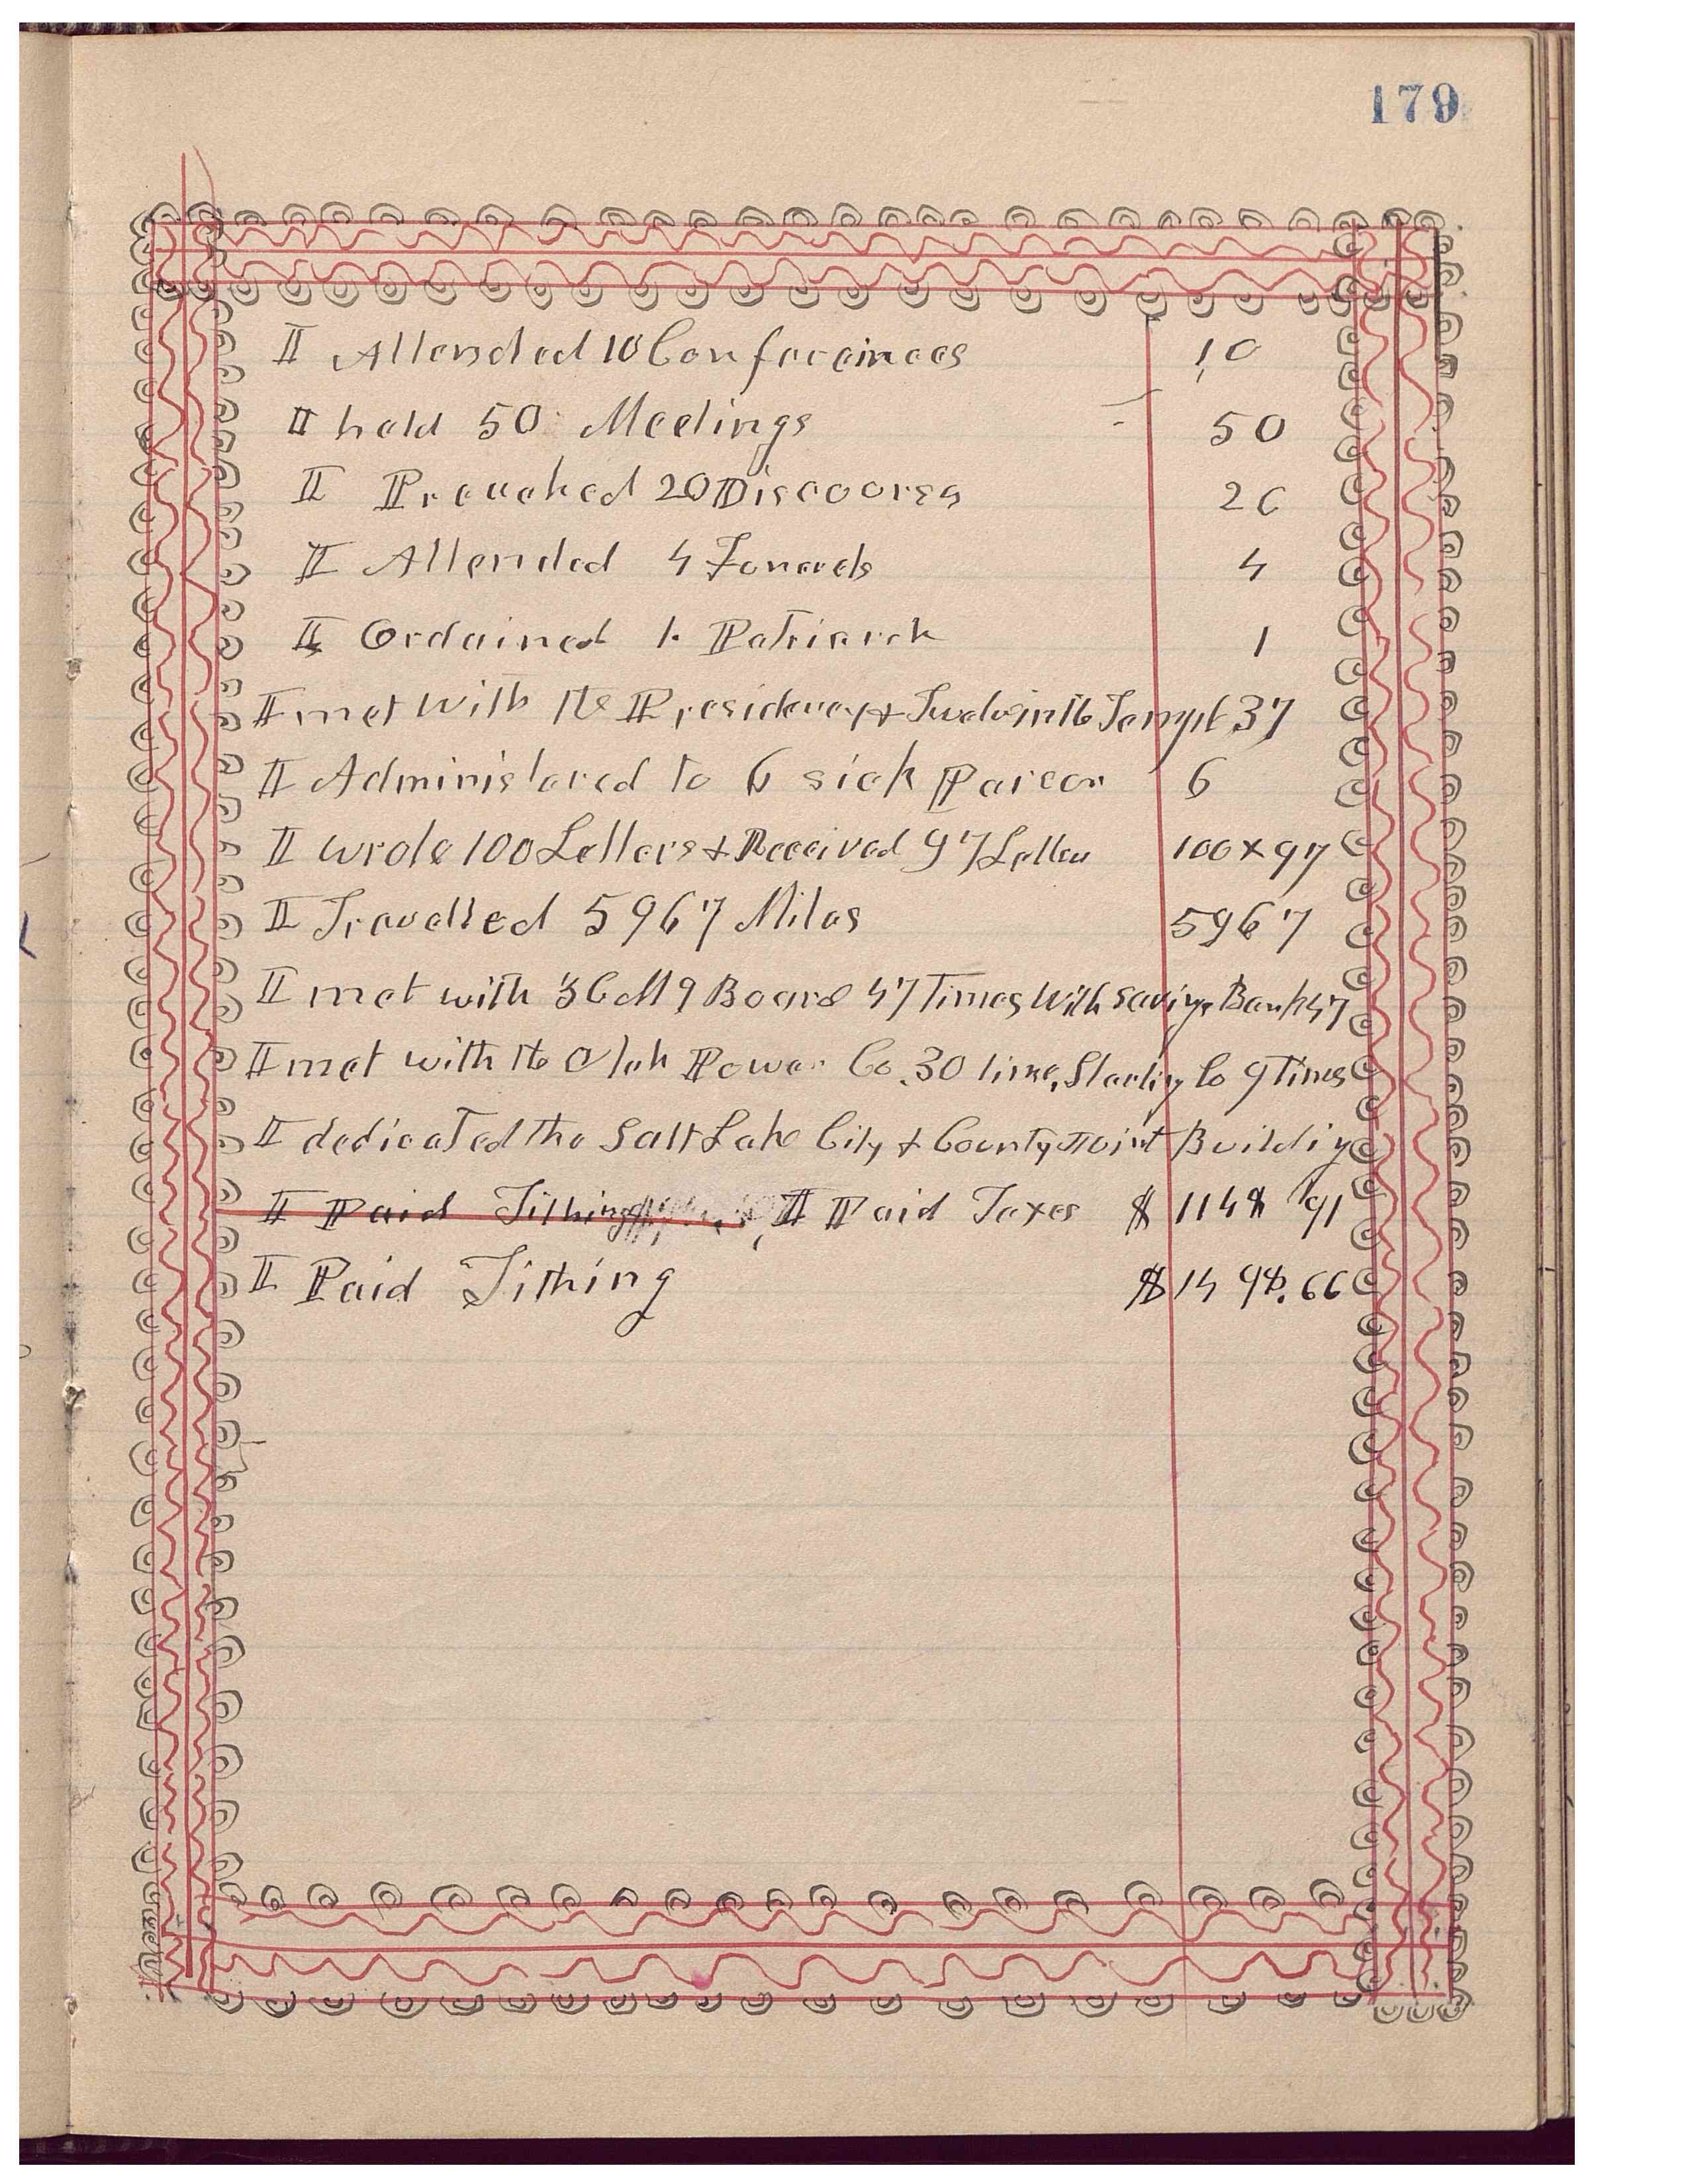 179
I Attended 10 Confereinces 10
I held 50 Meetings 50
I Preached 20 Discoorses 20
I Attended 4 Funerals 4
I Ordained 1 Patriarch 1
I met with the Presidency & Twelve in the Temple 37
I Administered to 6 sick Parson 6
I wrote 100 Letters & Received 97 Letters 100 X 97
I Travelled 5967 Miles 5967
I met with ZCMI Board 47 Times With Savings Bank 47
I met with the Utah Power Co. 30 times, Sterling Co 9 Times
I dedicated the Salt Lake City & County Joint Building
I Paid Tithing I Paid Taxes $ 114 91
I Paid Tithing $14 .66